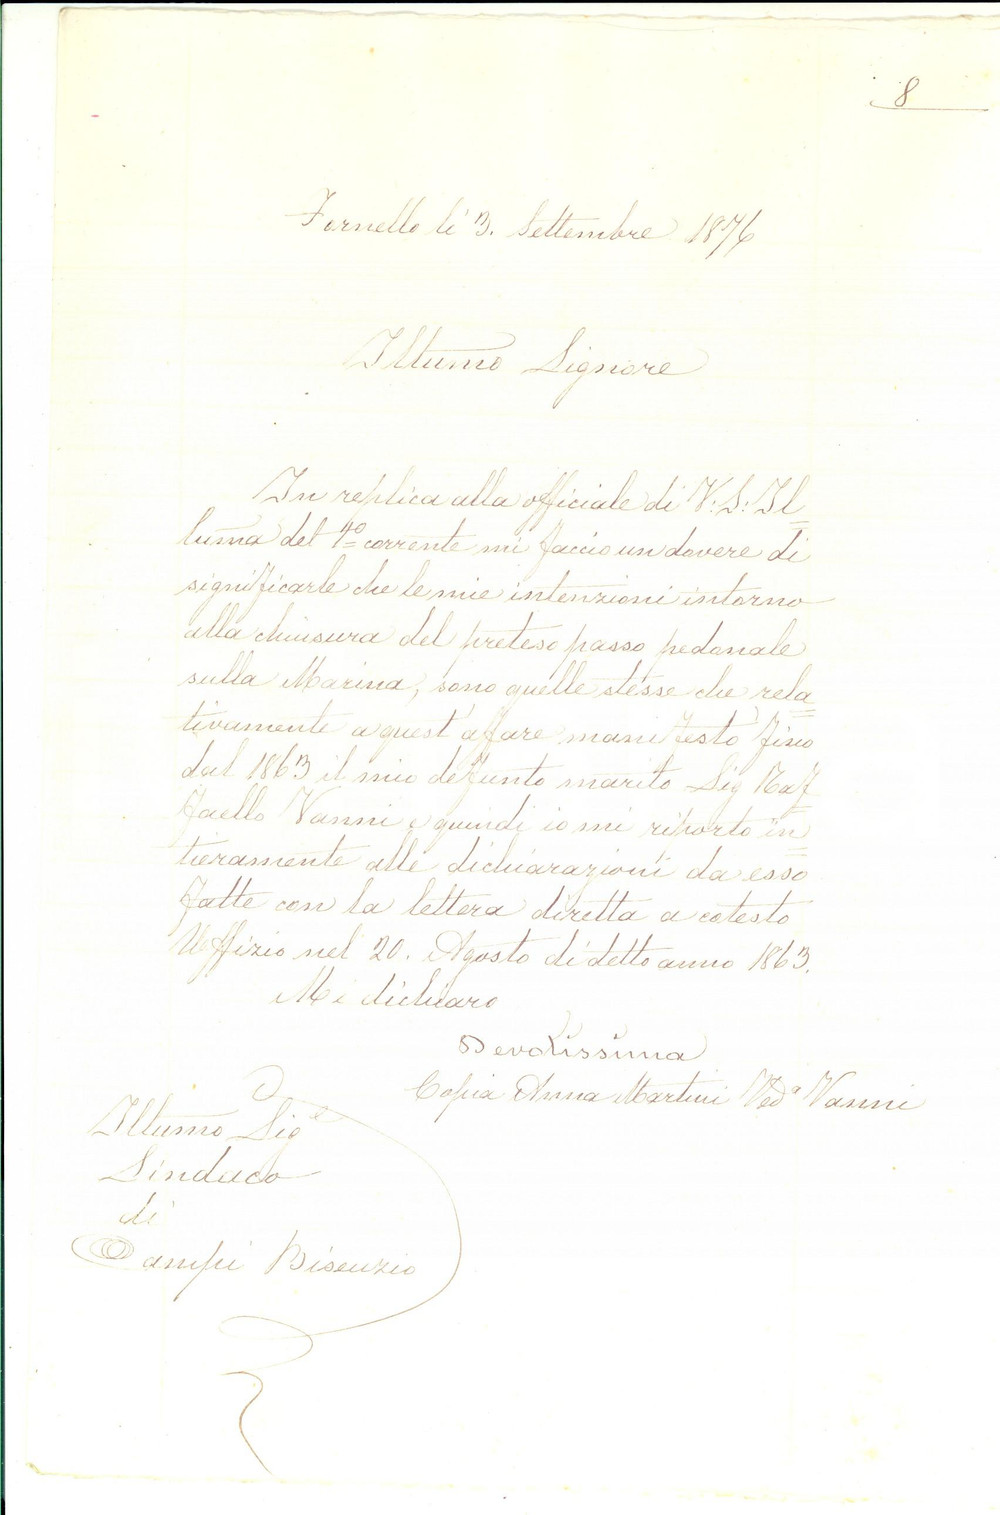 8
Fornello li 3. Settembre 1876
Illumo Signore
In replica alla officiale di V: S: Il=
luma del 1º corrente mi faccio un dovere di
significarle che le mie intenzioni intorno
alla chiusura del preteso passo pedonale
sulla Marina, sono quelle stesse che rela=
tivamente a quest'affare manifestò fino
dal 1863 il mio defunto marito Sig Raf
faello Vanni e quindi io mi riporto in=
tieramente alle dichiarazioni da esso
fatte con la lettera diretta a cotesto
Uffizio nel 20. Agosto di detto anno 1863.
Mi dichiaro
Devotissima
Copia Anna Martini Veda Vanni
Illumo Sige
Sindaco
di
Campi Bisenzio